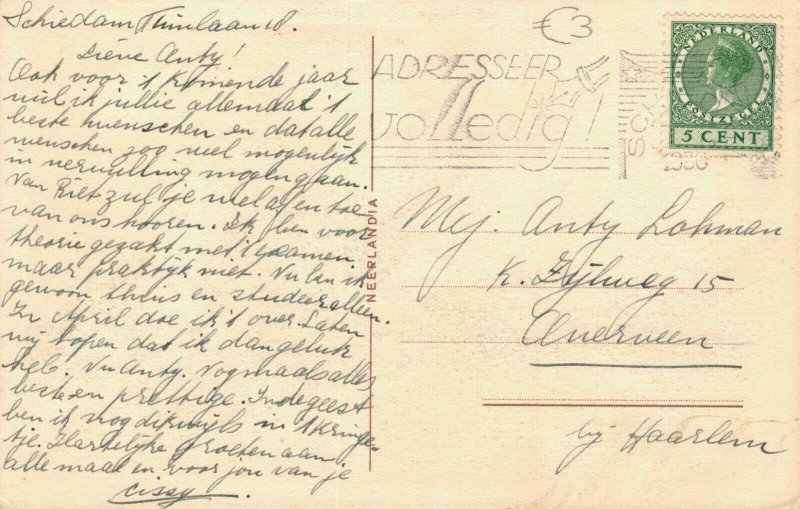 Schiedam Tuinlaan 18.
Liéve Anty!
Ook voor 't komende jaar
wil ik jullie allemaal 't
beste wenschen en dat alle
wenschen zoo veel mogenlijk
in vervulling mogen gaan.
Van Riet zul je wel af en toe
van ons hooren. Ik ben voor
theorie gezakt met 't examen,
maar praktijk niet. Nu ben ik
gewoon thuis en studeer alleen.
In April doe ik 't over. Laten
wij hopen dat ik dan geluk
heb. Nu Anty. Nogmaals alles
beste en prettige. In de geest
ben ik nog dikwijls in 't kringe-
tje. Hartelijke groeten aan
allemaal en voor jou van je
Cissy.
NEERLANDIA
€3
ADRESSEER
volledig!
NEDERLAND
POSTZEGEL
5 CENT
Mej. Anty Lohman
K. Zijlweg 15
Overveen
bij Haarlem